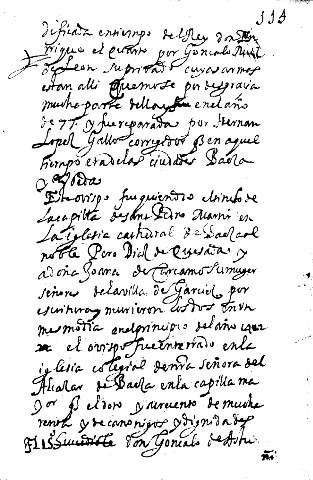 114
dificada en tiempo del Rey don En
rrique el quarto por Gonçalo
de Leon su priuado cuyas armas
estan alli quemose por desgraçia
mucha parte della en el año
de 77 y fue reparada por Hernan
Lopez Gallo corregidor q̃ en aquel
tiempo era de las ciudades Baeza
y Vbeda
Este obispo fue quien dio el titulo de
la capilla de san Pedro Martir en
la iglesia cathedral de Baeza al
noble Pero Diaz de Quesada y
a doña Joana de Carcamo su muger
señores de la villa de Garciez por
escritura y murieron los dos en vn
mesmo dia en el principio del año
el obispo fue enterrado en la
iglesia colegial de nr̃a señora del
Alcaçar de Baeza en la capilla ma
yor q̃ el doto y acrecento de mucha
renta y de canonigos y dignidades
don Gonçalo de Astu
ñi